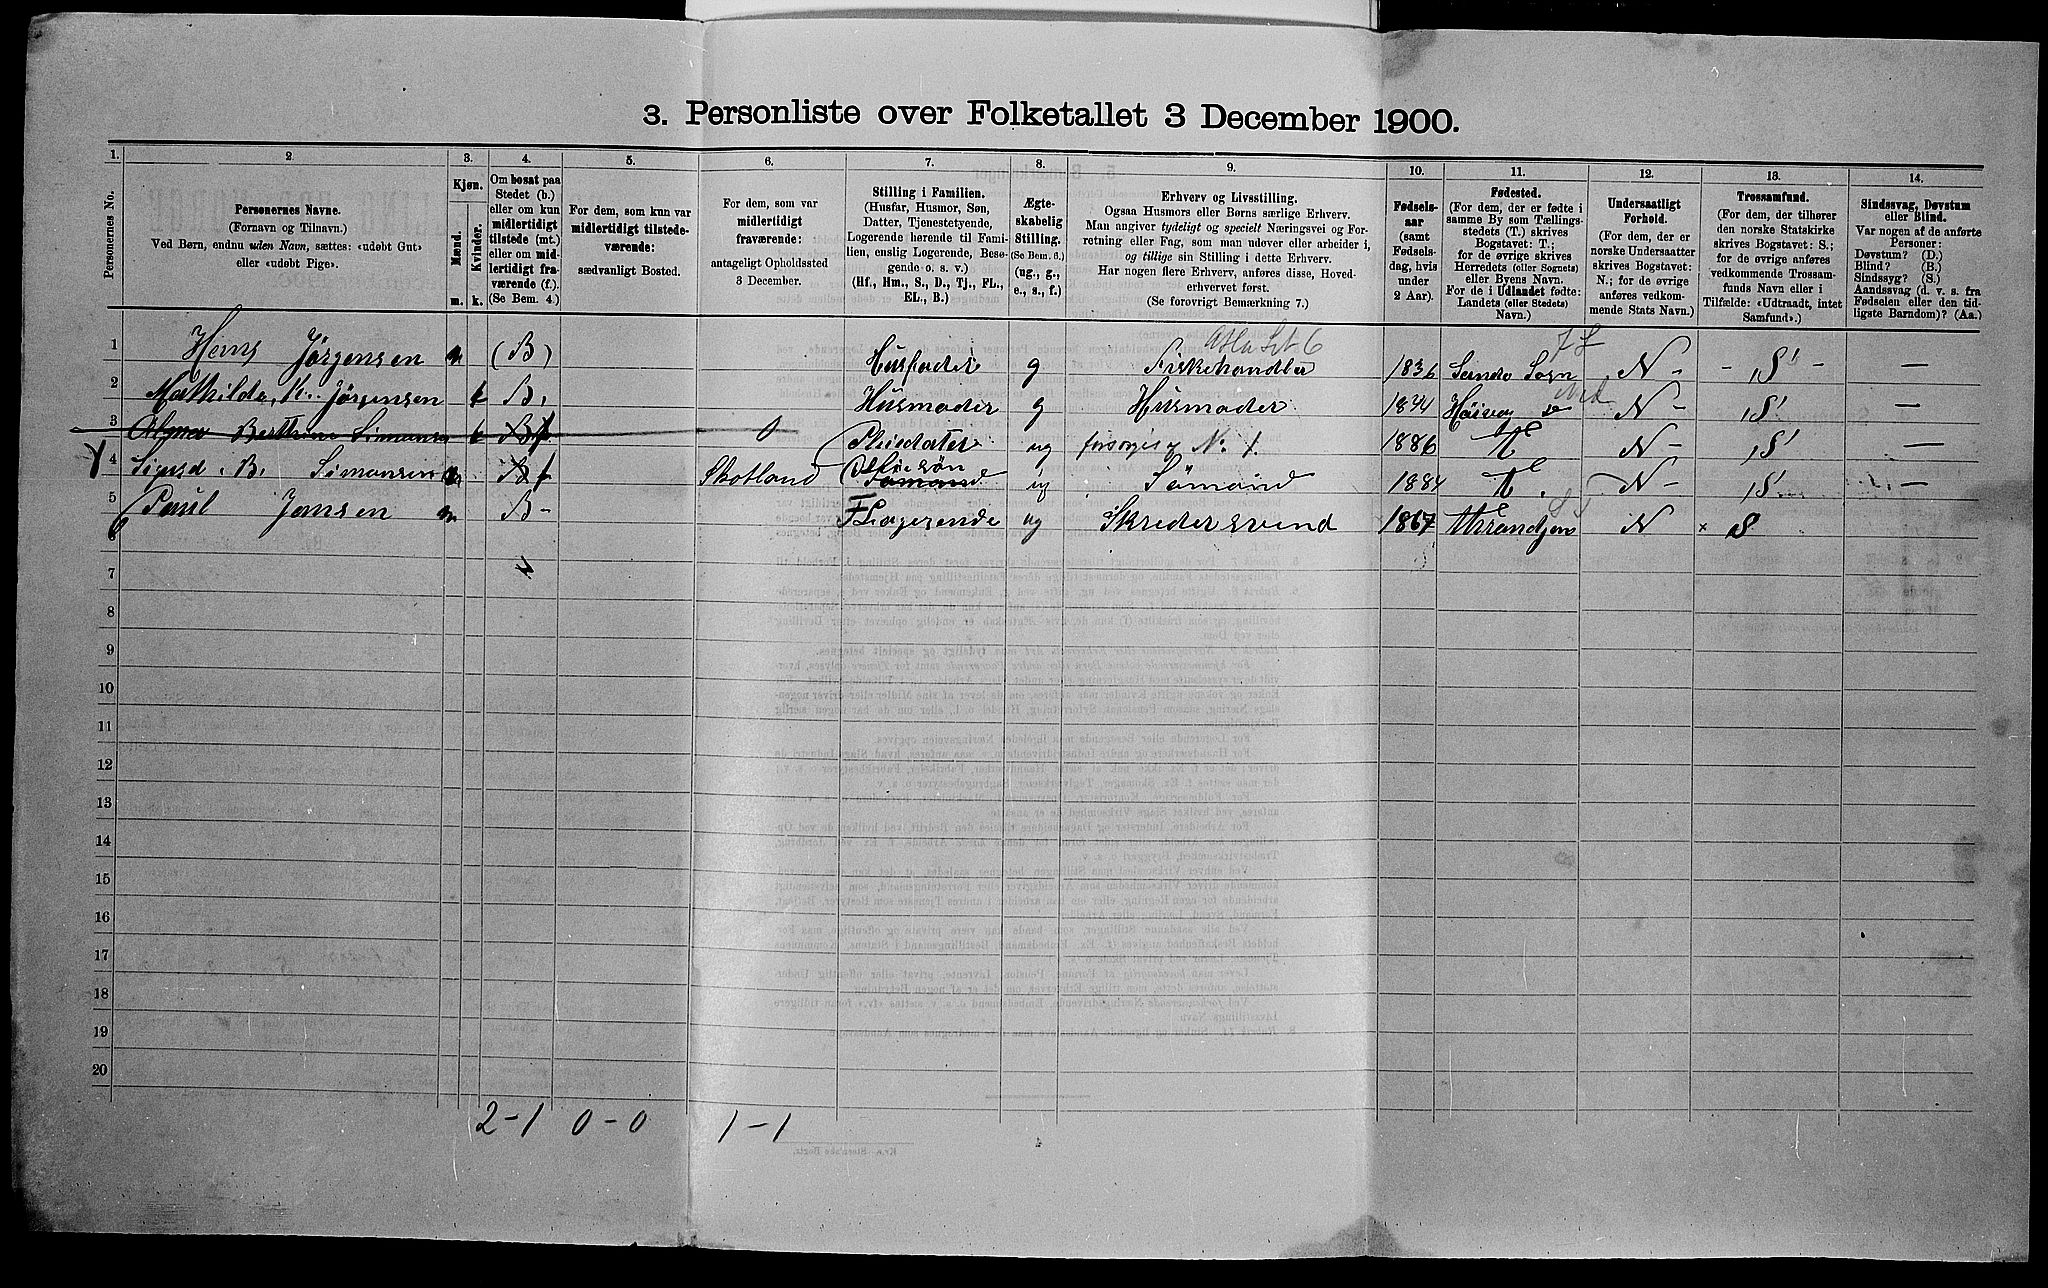 3. Personliste over Folketallet 3 December 1900.
1. 2. 3. 4. 5. 6. 7. 8. 9. 10. 11. 12. 13. 14.
Personernes No.
Personernes Navne.
(Fornavn og Tilnavn.)
Ved Børn, endnu uden Navn, sættes: «udøbt Gut»
eller «udøbt Pige».
Kjøn.
Mænd.
Kvinder.
m. k.
Om bosat paa
Stedet (b.)
eller om kun
midlertidigt
tilstede (mt.)
eller om mid-
lertidigt fra-
værende (f.)
(Se Bem. 4.)
For dem, som kun var
midlertidigt tilstede-
værende:
sædvanligt Bosted.
For dem, som var
midlertidigt
fraværende:
antageligt Opholdssted
3 December.
Stilling i Familien.
(Husfar, Husmor, Søn,
Datter, Tjenestetyende,
Logerende hørende til Fami-
lien, enslig Logerende, Besø-
gende o. s. v.)
(Hf., Hm., S., D., Tj., FL.,
EL., B.)
Ægte-
skabelig
Stilling.
(Se Bem. 6.)
(ug., g.,
e., s., f.)
Erhverv og Livsstilling.
Ogsaa Husmors eller Børns særlige Erhverv.
Man angiver tydeligt og specielt Næringsvei og For-
retning eller Fag, som man udøver eller arbeider i,
og tillige sin Stilling i dette Erhverv.
Har nogen flere Erhverv, anføres disse, Hoved-
erhvervet først.
(Se forøvrigt Bemærkning 7.)
Fødsels-
aar
(samt
Fødsels-
dag, hvis
under
2 Aar).
Fødested.
(For dem, der er fødte i
samme By som Tællings-
stedets (T.) skrives
Bogstavet: T.;
for de øvrige skrives
Herredets (eller Sognets)
eller Byens Navn.
For de i Udlandet fødte:
Landets (eller Stedets)
Navn.)
Undersaatligt
Forhold.
(For dem, der er
norske Undersaatter
skrives Bogstavet:
N.; for de øvrige
anføres vedkom-
mende Stats Navn.)
Trossamfund.
(For dem, der tilhører
den norske Statskirke
skrives Bogstavet: S.;
for de øvrige anføres
vedkommende Trossam-
funds Navn eller i
Tilfælde: «Udtraadt, intet
Samfund».)
Sindssvag, Døvstum
eller Blind.
Var nogen af de anførte
Personer:
Døvstum? (D.)
Blind? (B.)
Sindssyg? (S.)
Aandssvag (d. v. s. fra
Fødselen eller den tid-
ligste Barndom)? (Aa.)
1 Hans Jørgensen m (B) Husfader g Fiskehandler 1836 Sando Sogn N - - S -
2 Mathilde K. Jørgensen k B. Husmoder g Husmoder 1844 N - S
3 Berthine Simonsen k B f 0 Pleiedatter ug forsørges af No. 1. 1886 T N - S
4 Sigurd B. Simonsen m B f Skotland Søn ug Sømand 1884 T. N - S
5 Paul Jansen m B - F Logerende ug Skredersvend 1867 N × S
6
7
8
9
10
11
12
13
14
15
16
17
18
19
20
2-1 0-0 1-1